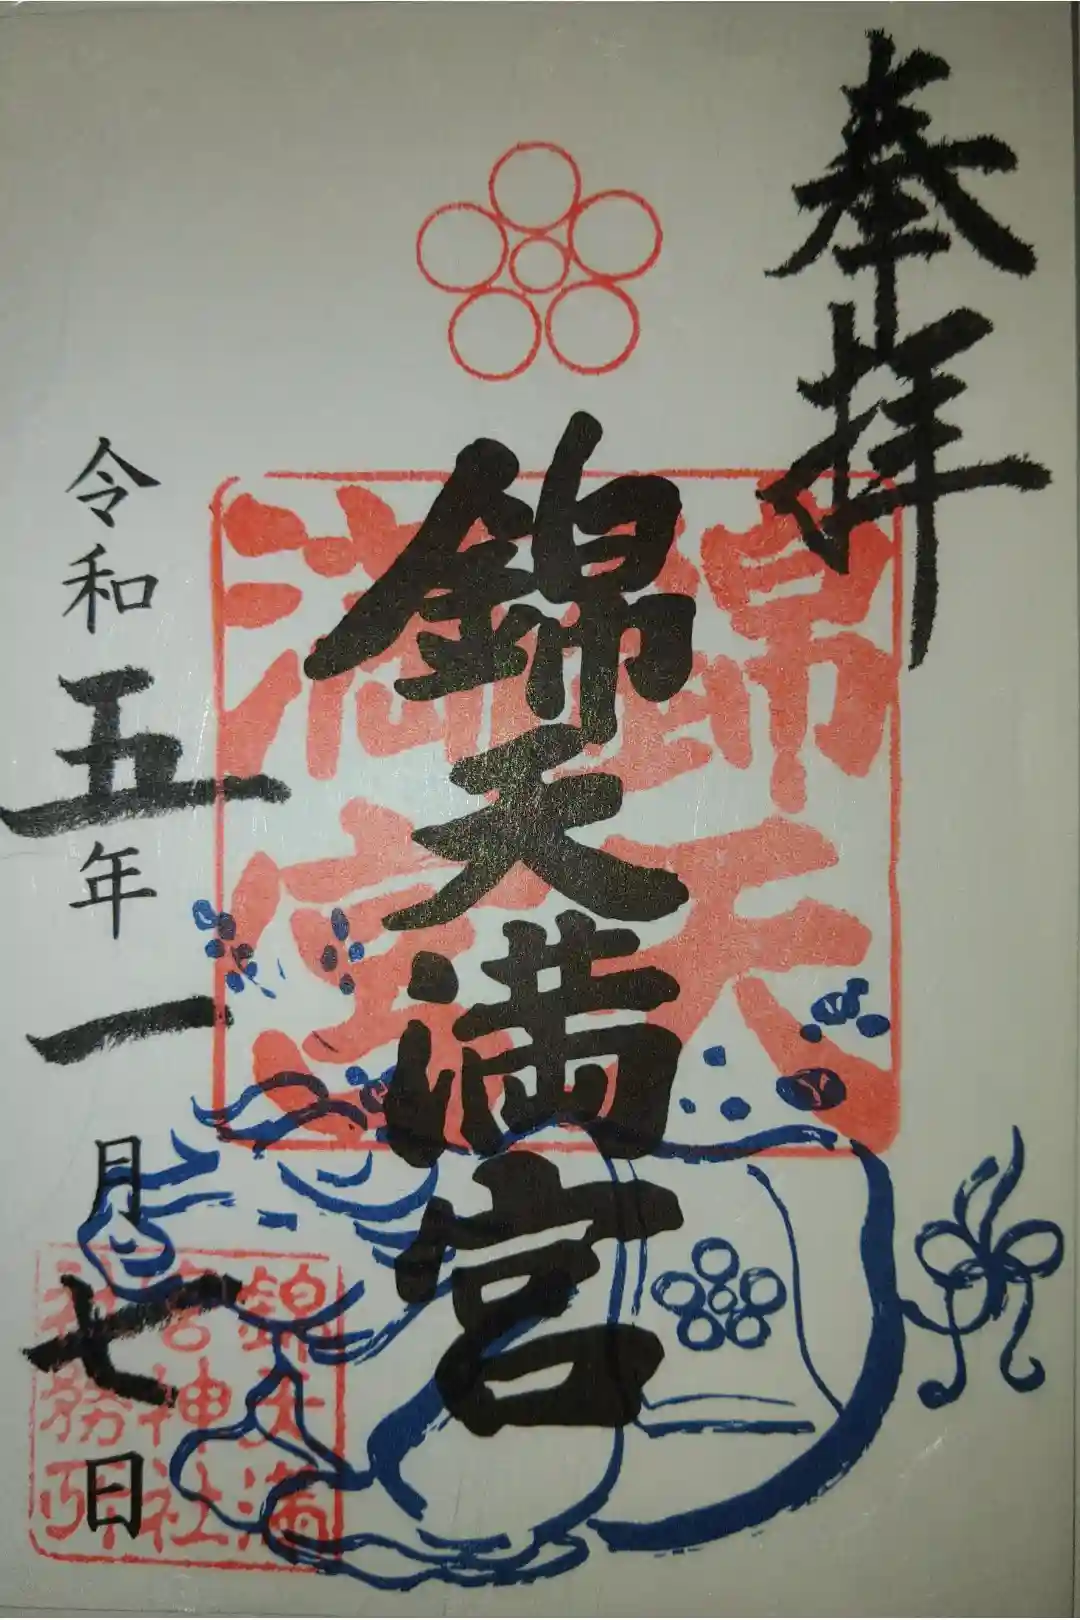 奉拝
錦天満宮
錦天
満宮
令和五年一月七日
錦天満
宮神社
社務所